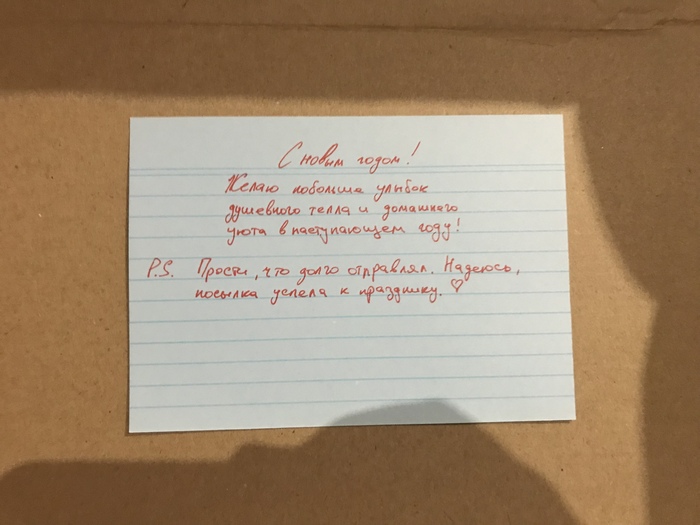 С новым годом!
Желаю побольше улыбок
душевного тепла и домашнего
уюта в наступающем году!
P.S. Прости, что долго отправлял. Надеюсь,
посылка успела к празднику. ♡